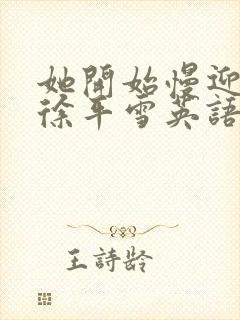 她開始慢迎
徐年雪英語
王詩齡